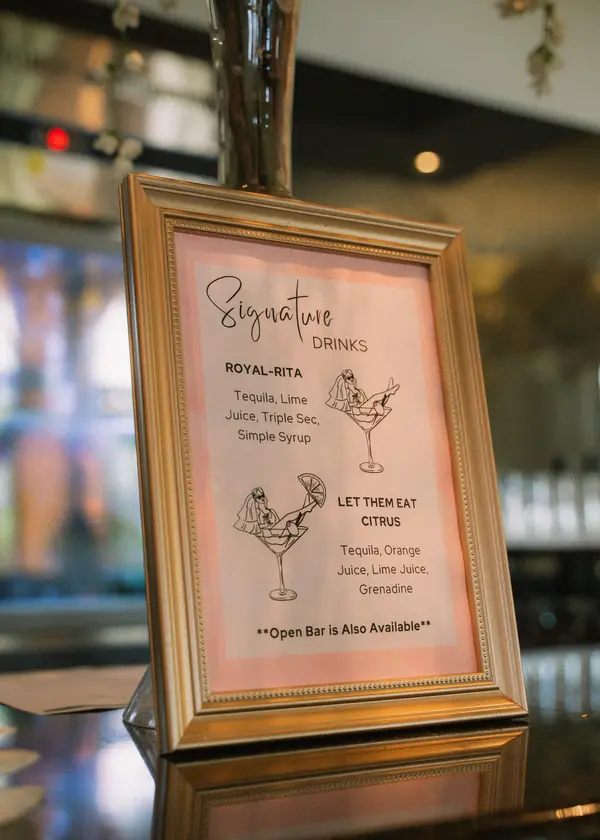 Signature
DRINKS
ROYAL-RITA
Tequila, Lime
Juice, Triple Sec,
Simple Syrup
LET THEM EAT
CITRUS
Tequila, Orange
Juice, Lime Juice,
Grenadine
**Open Bar is Also Available**